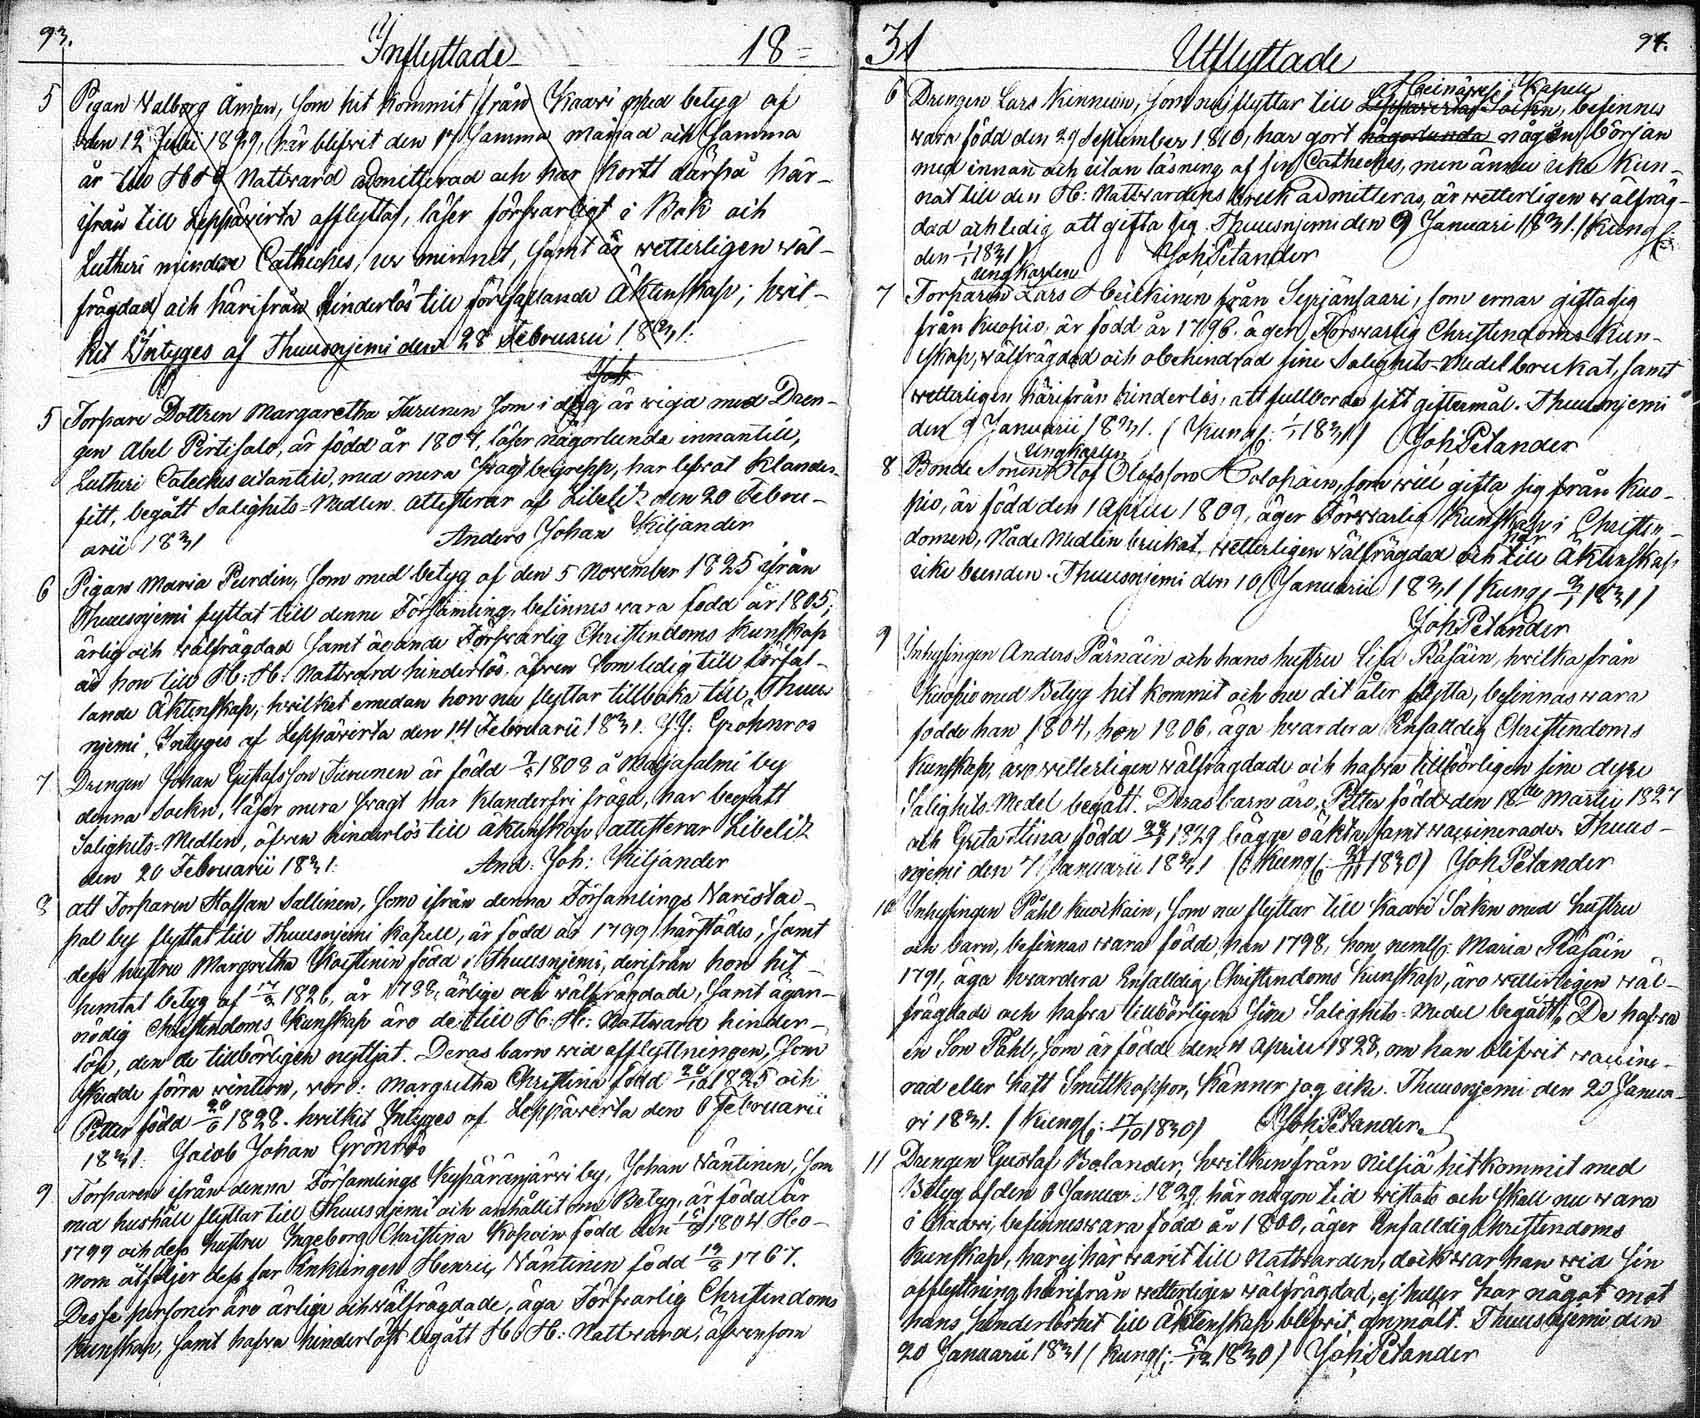 93.
Inflyttade 18=
5 Pigan Valborg Åman, som hit kommit från Kaavi med betyg af
den 12 Julii 1829, här blefvit den samma månad och samma
år till H: H: Nattvard admitterad och har kortt därpå här-
ifrån till Leppävirta afflyttat, läser försvarligt i Bok och
Lutheri mindre Catheches, ur minnet, samt är wetterligen wäl-
frägdad och härifrån hinderlös till förefallande Äktenskap; hvil-
ket Intyges af Thuusnjemi den 28 Februarii 1831.
Joh
5 Torpare Dottren Margaretha Turunen som i dag är vigd med Dren-
gen Abel Pertisalo, är född år 1807, läser någorlunda innantill,
Lutheri Cateches utantill, med mera svagt begrepp, har lefvat klander-
fitt, begått Salighets-Medlen. Attesterar af Libelitz den 20 Febru-
arii 1831 Anders Johan Kiljander
6 Pigan Maria Purdin, som med betyg af den 5 November 1825 ifrån
Thuusnjemi flyttat till denne Församling, befinnes vara född år 1805;
ärlig och wälfrägdad samt ägande Försvarlig Christendoms kunskap
är hon till H: H: Nattvard hinderlös, äfven som ledig till förefal-
lande Äktenskap, hvilket emedan hon nu flyttar tillbaka till Thuus
njemi, Intyges af Leppävirta den 14 Februarii 1831. J.J. Gröhnroos
7 Drengen Johan Gustafsson Turunen är född 1808 å Maljasalmi by
denna Sockn, läser mera svagt har klanderfri frägd, har begått
Salighets-Medlen, äfven hinderlös till äktenskap attesterar Libelitz
den 20 Februarii 1831. And: Joh: Kiljander
8 att Torparen Staffan Sallinen, som ifrån denna Församlings Varistai-
pal by flyttat till Thuusnjemi Kapell, är född år 1799 härstädes, samt
dess hustru Margretha Kaistinin född i Thuusnjemi, derifrån hon hit
hemtat betyg af 1820, år 1798, ärlige och wälfrägdade, samt ägan-
nödig Christendoms kunskap äro de till H: H: Nattvard hinder-
löse, den de tillbörligen nyttjat. Deras barn vid afflyttningen, som
skedde förra wintern, voro: Margretha Christina född 1825 och
Petter född 1828. hvilket Intyges af Leppäverta den 6 Februarii
1831. Jacob Johan Grönroos
9 Torparen ifrån denna Församlings Kypäränjärvi by, Johan Väntinen, som
med hushåll flyttar till Thuusnjemi och anhållit om Betyg, är född år
1799 och dess hustru Ingeborg Christina Kopoin född den 1804 Ho-
nom åtföljer dess far Enklingen Henric Väntinen född 1767.
Desse personer äro ärlige och wälfrägdade, äga Försvarlig Christendoms
kunskap, samt hafva hinderlöst begått H: H: Nattvard, äfvensom
31 Utflyttade 94.
at Heinävesi Kapell
6 Drengen Lars Kinnunen, som nu flyttar till Leppävirta Sockn, befinnes
vara född den 29 September 1810, har gort någorlunda någon början
med innan och utan läsning af sin Catheches, men ännu icke kun-
nat till den H: Nattvardens bruk admitteras, är wetterligen wälfräg-
dad och ledig att gifta sig. Thuusnjemi den 9 Januari 1831. (Kungj:
den 1/1 1831) Joh: Petander
ungkarlen
7 Torparen Lars Heikkinen från Syrjänsaari, som ernar gifta sig
från Kuopio, är född år 1796. äger Försvarlig Christendoms kun-
skap, wälfrägdad och obehindrad sine Salighets-Medel brukat, samt
wetterligen härifrån hinderlös, att fullborda sitt giftermål. Thuusnjemi
den 9 Januarii 1831. (Kungj: 1/1 1831) Joh: Petander
ungkarlen
8 Bonde Sonen Olof Olofsson Holopain, som will gifta sig från Kuo-
pio, är född den 1 Aprill 1809, äger Försvarlig kunskap i Christen-
domen, Nåde Medlen brukat, wetterligen wälfrägdad och till Äktenskap
icke bunden. Thuusnjemi den 10 Januarii 1831 (Kungj: 1831)
Joh: Petander
9 Inhysingen Anders Pärnäin och hans hustru Lisa Räsäin, hvilka från
Kuopio med Betyg hit kommit och nu dit åter flytta, befinnas vara
födde han 1804, hon 1806, äga hvardera Enfalldig Christendoms
kunskap, äro wetterligen wälfrägdade och hafva tillbörligen sine dyre
Salighets Medel begått. Deras barn äro, Petter född den 18de Martii 1827
och Greta Stina född 1829 bägge oäkta, samt vaccinerade. Thuus-
njemi den 7 Januarii 1831 (Kungj: 1830) Joh: Petander
10 Inhysingen Påhl Kuokkain, som nu flyttar till Kaavi Sockn med hustru
och barn, befinnas vara födde, han 1798, hon, neml: Maria Räsäin
1791, äga hvardera Enfalldig Christendoms kunskap, äro wetterligen wäl-
frägdade och hafva tillbörligen sine Salighets-Medel begått. De hafva
en Son Påhl, som är född den 4 Aprill 1828, om han blifvit vaccine-
rad eller haft Smittkoppor, känner jag icke. Thuusnjemi den 20 Janua-
ri 1831. (Kungj: 17/10 1830) Joh: Petander
11 Drengen Gustaf Bolander, hvilken från Nilsiä hit kommit med
Betyg af den 6 Januari 1829. här någon tid vistats och skall nu vara
i Kaavi, befinnes vara född år 1800, äger Enfalldig Christendoms
kunskap, har ej här warit till Nattvarden, dock var han vid sin
afflyttning härifrån wetterligen wälfrägdad, ej heller har något mot
hans hinderlöshet till Äktenskap blefvit anmält. Thuusnjemi den
20 Januarii 1831 (Kungj: 1830) Joh: Petander